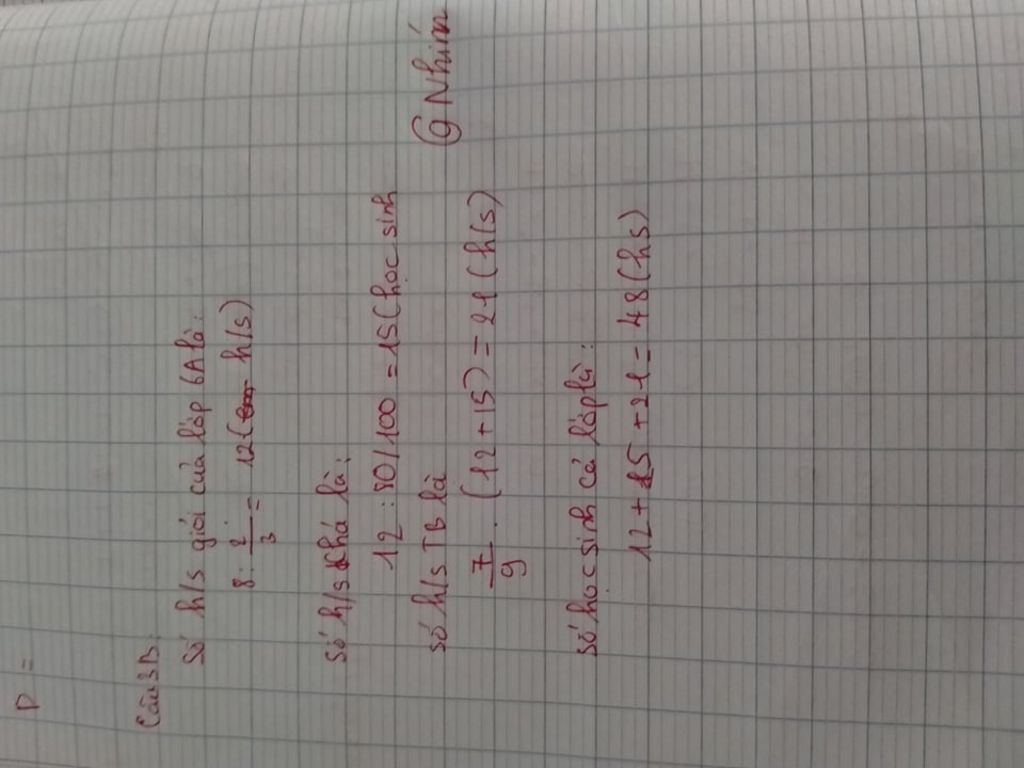 D =
Câu 3B:
Số h/s giỏi của lớp 6A là:
8 : 2/3 = 12 ( h/s)
Số h/s Khá là:
12 : 80/100 = 15 (học sinh
số h/s TB là
7/9 . (12 + 15) = 21 (h/s)
G Nhim
số học sinh cả lớp là:
12 + 15 + 21 = 48 (hs)